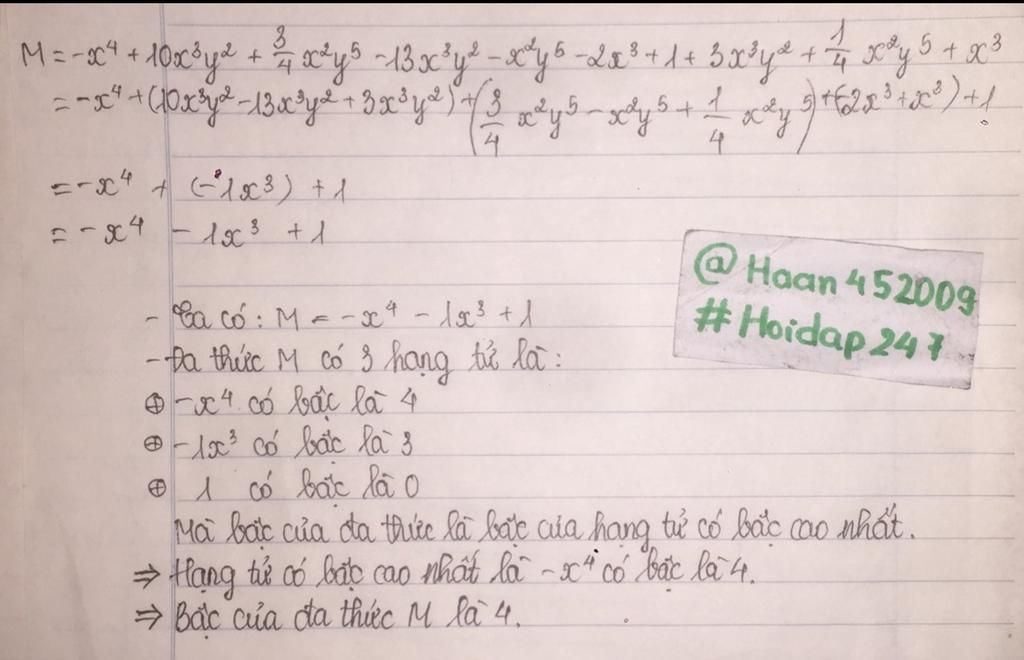 M = -x⁴ + 10x³y² + 3/4 x²y⁵ - 13x³y² - x²y⁵ - 2x³ + 1 + 3x³y² + 1/4 x²y⁵ + x³
= -x⁴ + (10x³y² - 13x³y² + 3x³y²) + (3/4 x²y⁵ - x²y⁵ + 1/4 x²y⁵) + (-2x³ + x³) + 1
= -x⁴ + (-1x³) + 1
= -x⁴ - 1x³ + 1
@Haan452009
#Hoidap247
- Ta có: M = -x⁴ - 1x³ + 1
- Đa thức M có 3 hạng tử là:
⊕ -x⁴ có bậc là 4
⊕ -1x³ có bậc là 3
⊕ 1 có bậc là 0
Mà bậc của đa thức là bậc của hạng tử có bậc cao nhất.
⇒ Hạng tử có bậc cao nhất là -x⁴ có bậc là 4.
⇒ Bậc của đa thức M là 4.